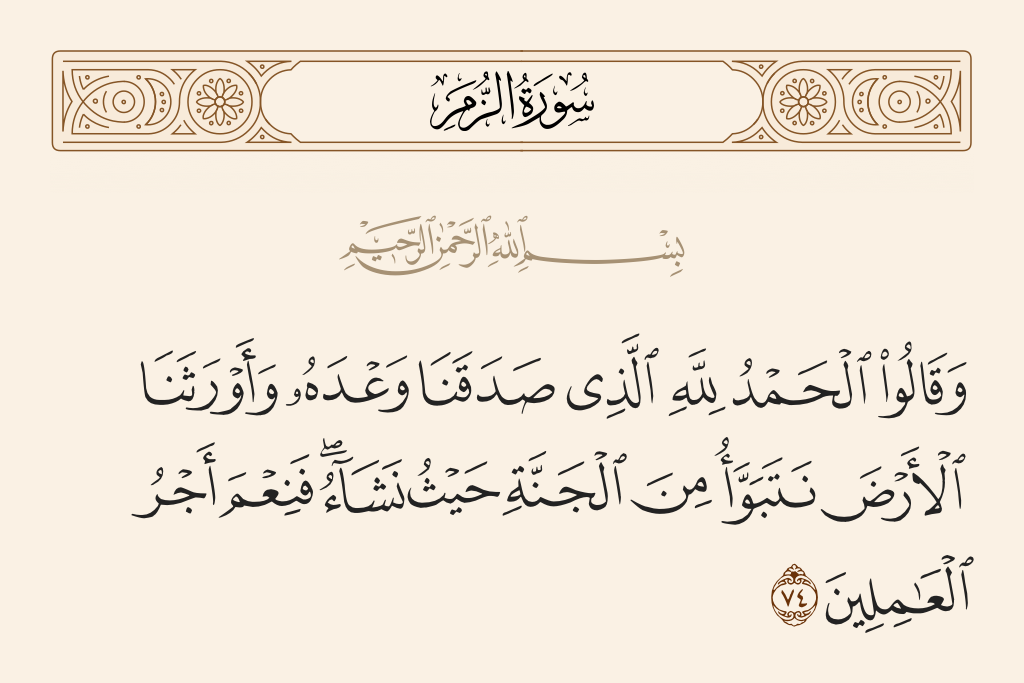 سُورَةُ الزُّمَرِ
بِسْمِ ٱللَّهِ ٱلرَّحْمَٰنِ ٱلرَّحِيمِ
وَقَالُوا۟ ٱلْحَمْدُ لِلَّهِ ٱلَّذِى صَدَقَنَا وَعْدَهُۥ وَأَوْرَثَنَا
ٱلْأَرْضَ نَتَبَوَّأُ مِنَ ٱلْجَنَّةِ حَيْثُ نَشَآءُ ۖ فَنِعْمَ أَجْرُ
ٱلْعَـٰمِلِينَ ٧٤